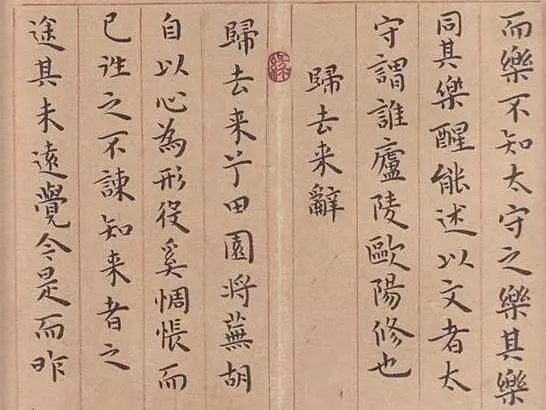 而樂不知太守之樂其樂
同其樂醒能述以文者太
守謂誰廬陵歐陽修也
歸去来辭
歸去来兮田園將蕪胡
自以心為形役奚惆悵而
已往之不諫知来者之
途其未遠覺今是而昨